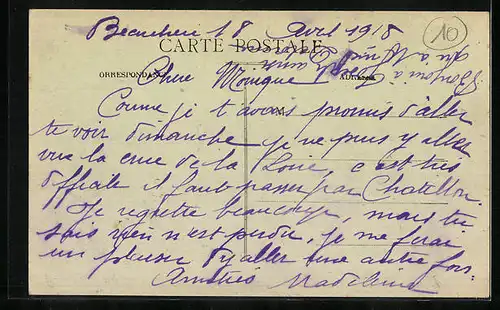 18 Avril 1918
CARTE POSTALE
CORRESPONDANCE
ADRESSE
10
Chère Monique
Comme je t avais promis d'aller
te voir dimanche je ne peus y aller
vue la crue de la Loire, c est très
difficile il faut passer par Chatillon.
Je regrette beaucoup, mais tu
sais rien n'est perdu, je me ferai
un plaisir d'y aller une autre fois.
Amitiés Madeleine